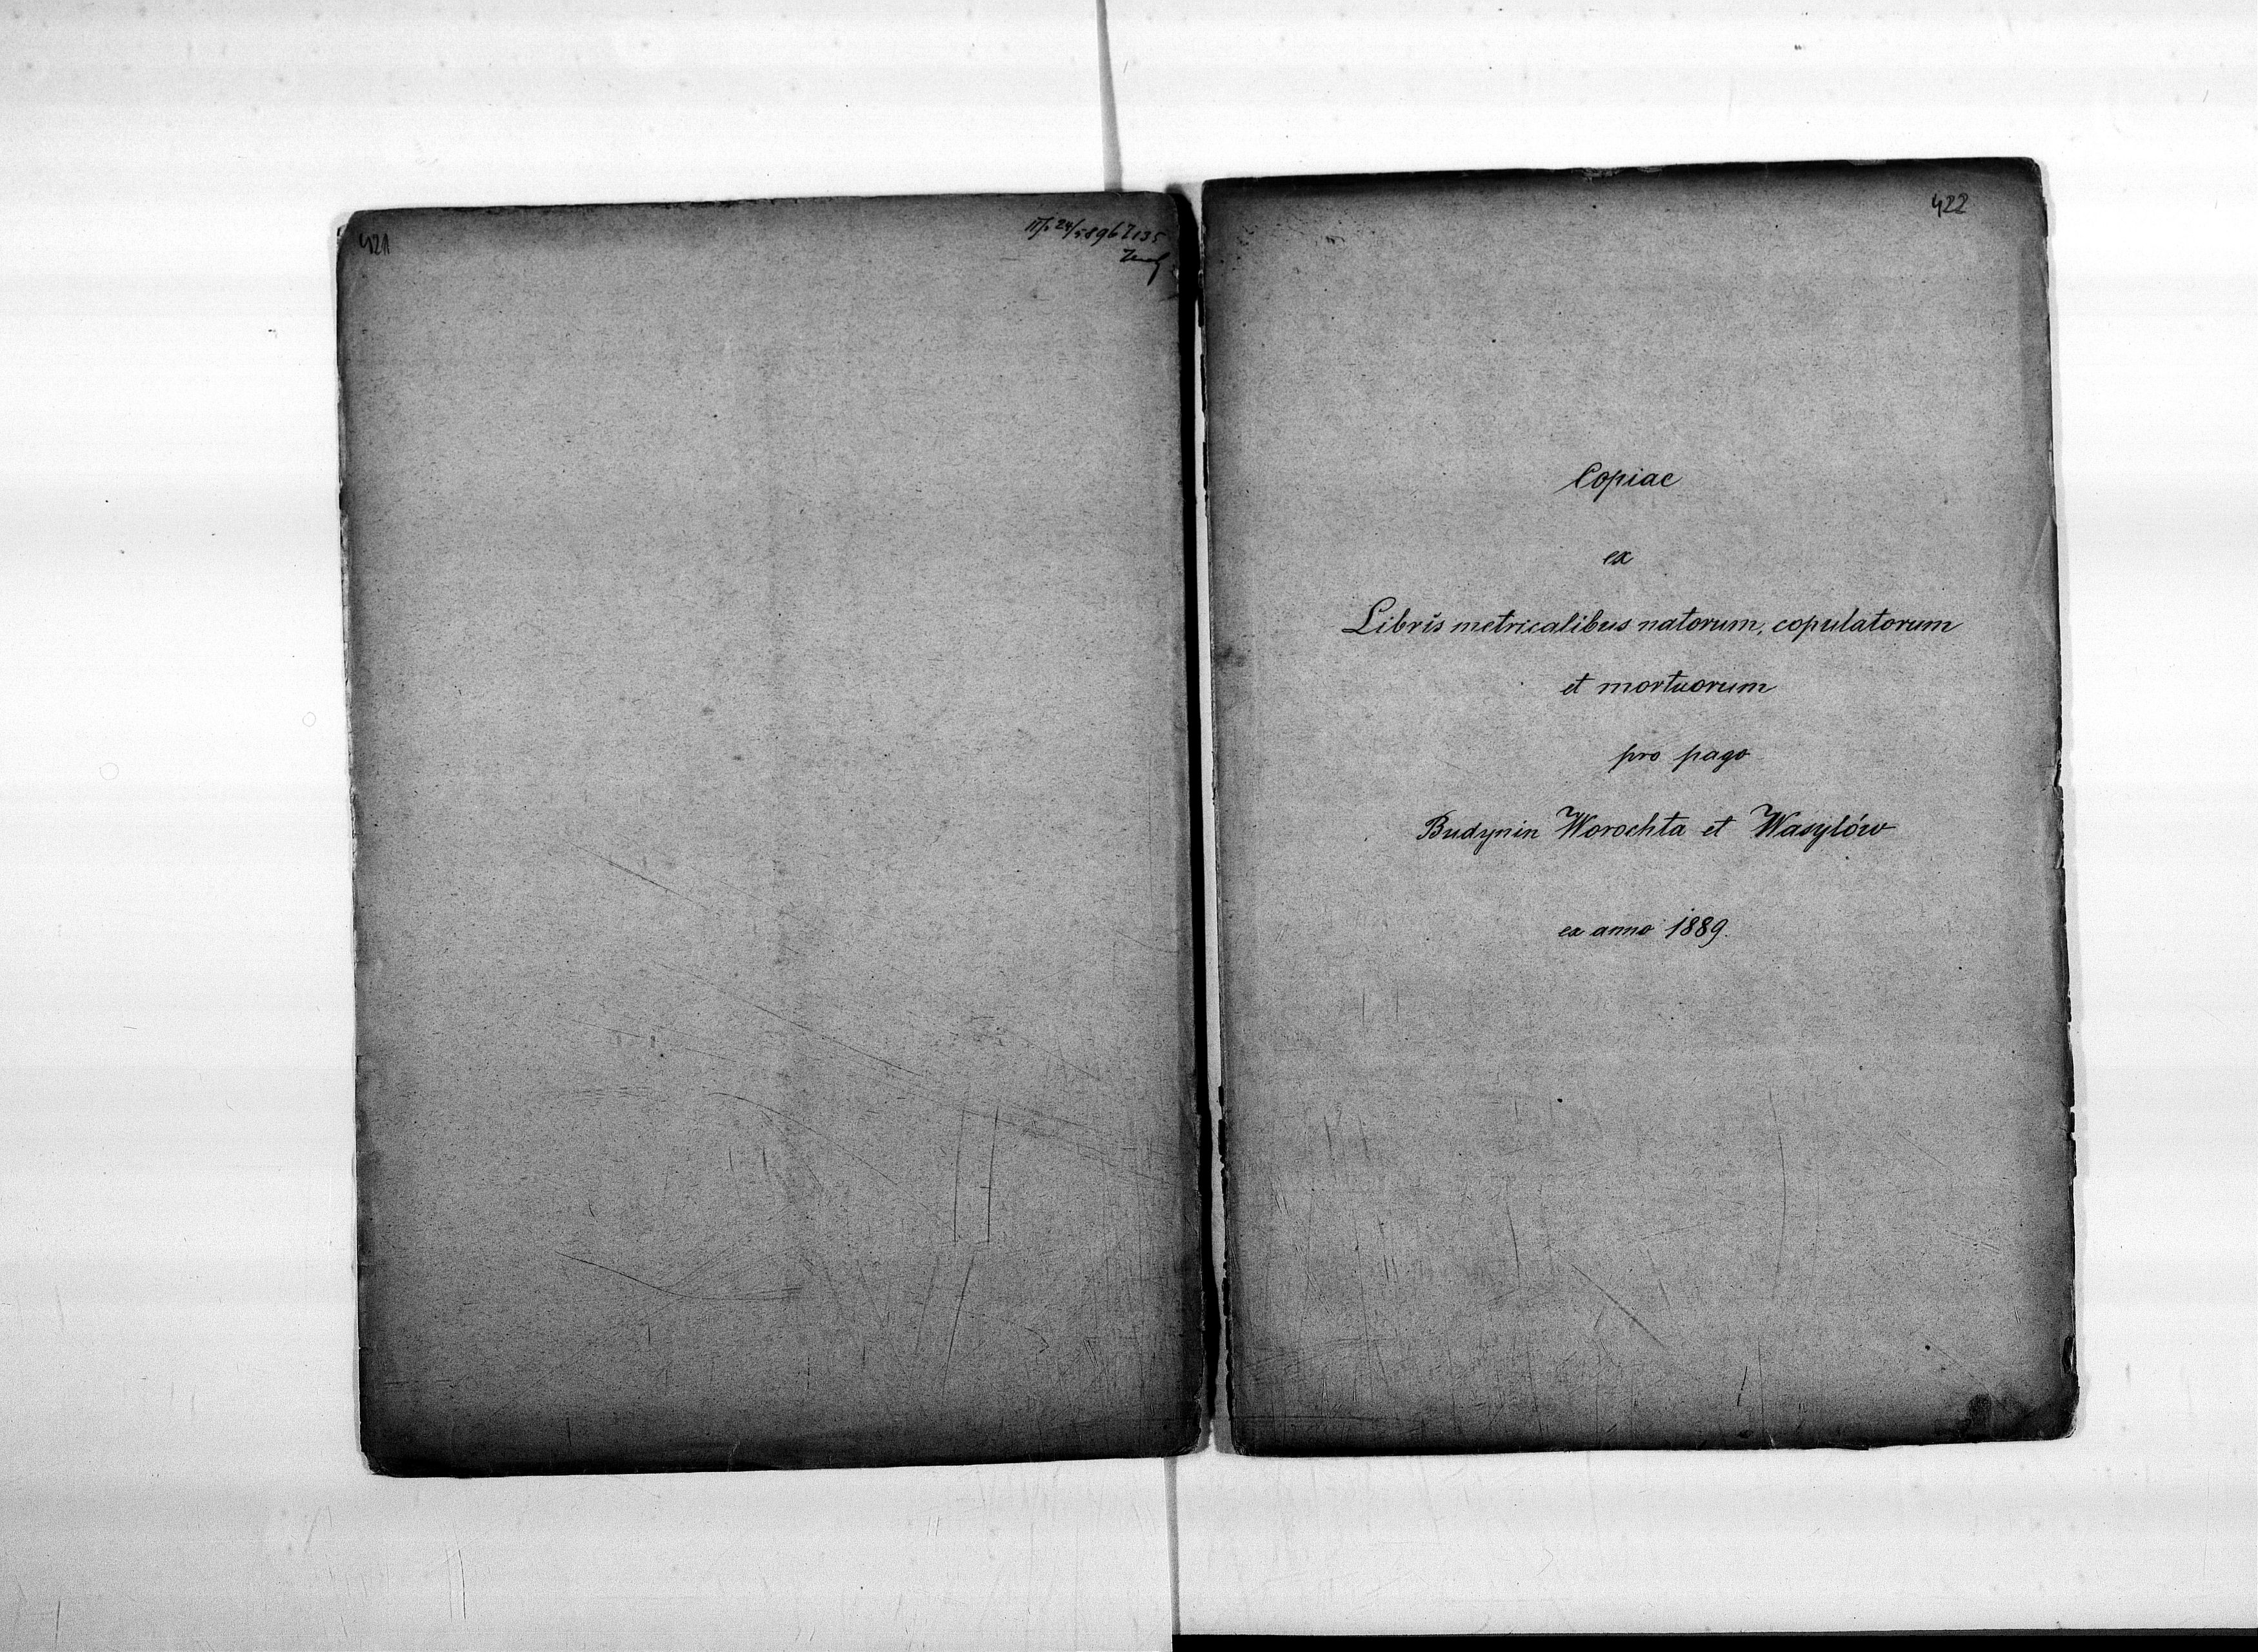 421
422
Copiae
ex
Libris metricalibus natorum, copulatorum
et mortuorum
pro pago
Budynin Worochta et Wasylów
ex anno 1889.